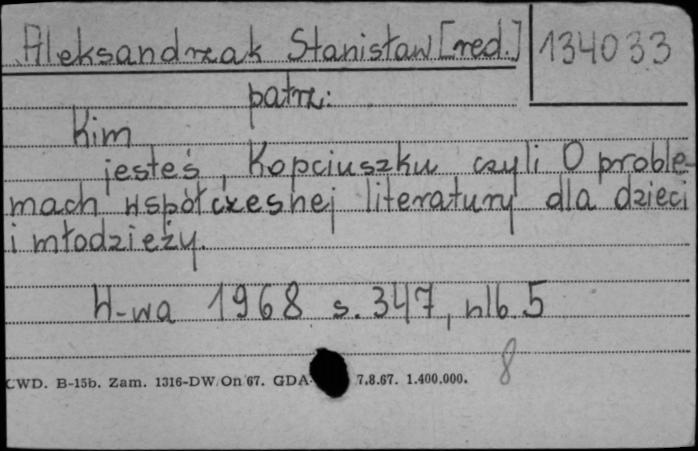 Aleksandrzak Stanisław [red.] 134033
patrz:
Kim
jesteś, Kopciuszku czyli O proble-
mach współczesnej literatury dla dzieci
i młodzieży.
W-wa 1968 s. 347, nlb. 5
8
CWD. B-15b. Zam. 1316-DW/On/67. GDA 7.8.67. 1.400.000.